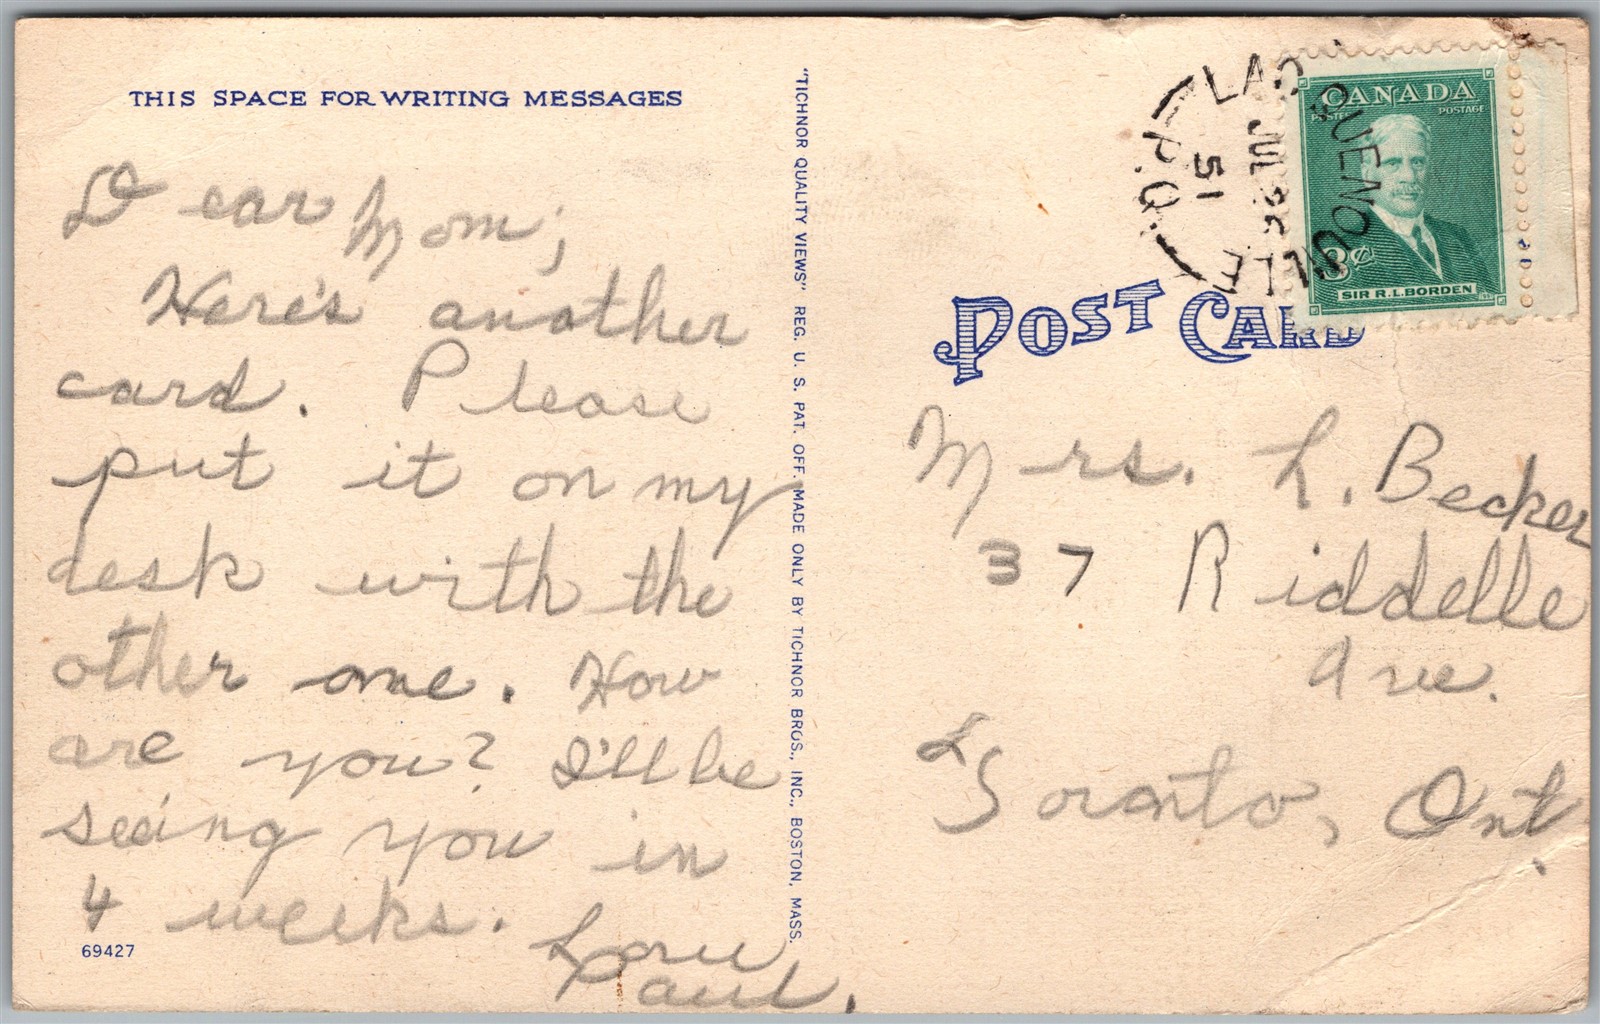 THIS SPACE FOR WRITING MESSAGES
Dear Mom;
Here's another
card. Please
put it on my
desk with the
other one. How
are you? I'll be
seeing you in
4 weeks.
Love
Paul.
69427
"TICHNOR QUALITY VIEWS" REG. U. S. PAT. OFF. MADE ONLY BY TICHNOR BROS., INC., BOSTON, MASS.
LAC QUENOUILLE
P.Q.
JUL 26
51
CANADA
POSTES POSTAGE
3¢
SIR R.L.BORDEN
POST CARD
Mrs. L. Becker
37 Riddelle
Ave.
Toronto, Ont.